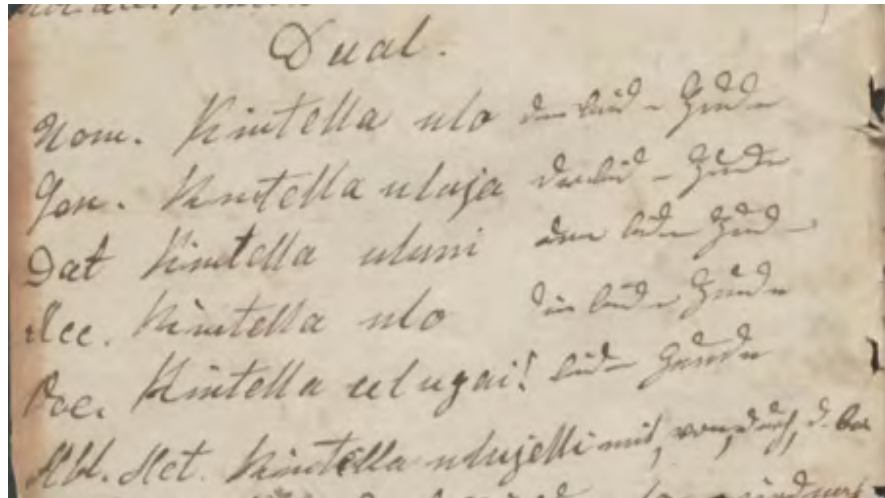 Dual.
Nom. Kintella ulo Hunde
Gen. Kintella uluja der beid - Hunde
Dat Kintella uluni den beiden Hund
Acc. Kintella ulo die beiden Hunde
Voc. Kintella ulugai! beide Hunde
Abl. Act. Kintella ulujelli mit, von, durch, d. bei